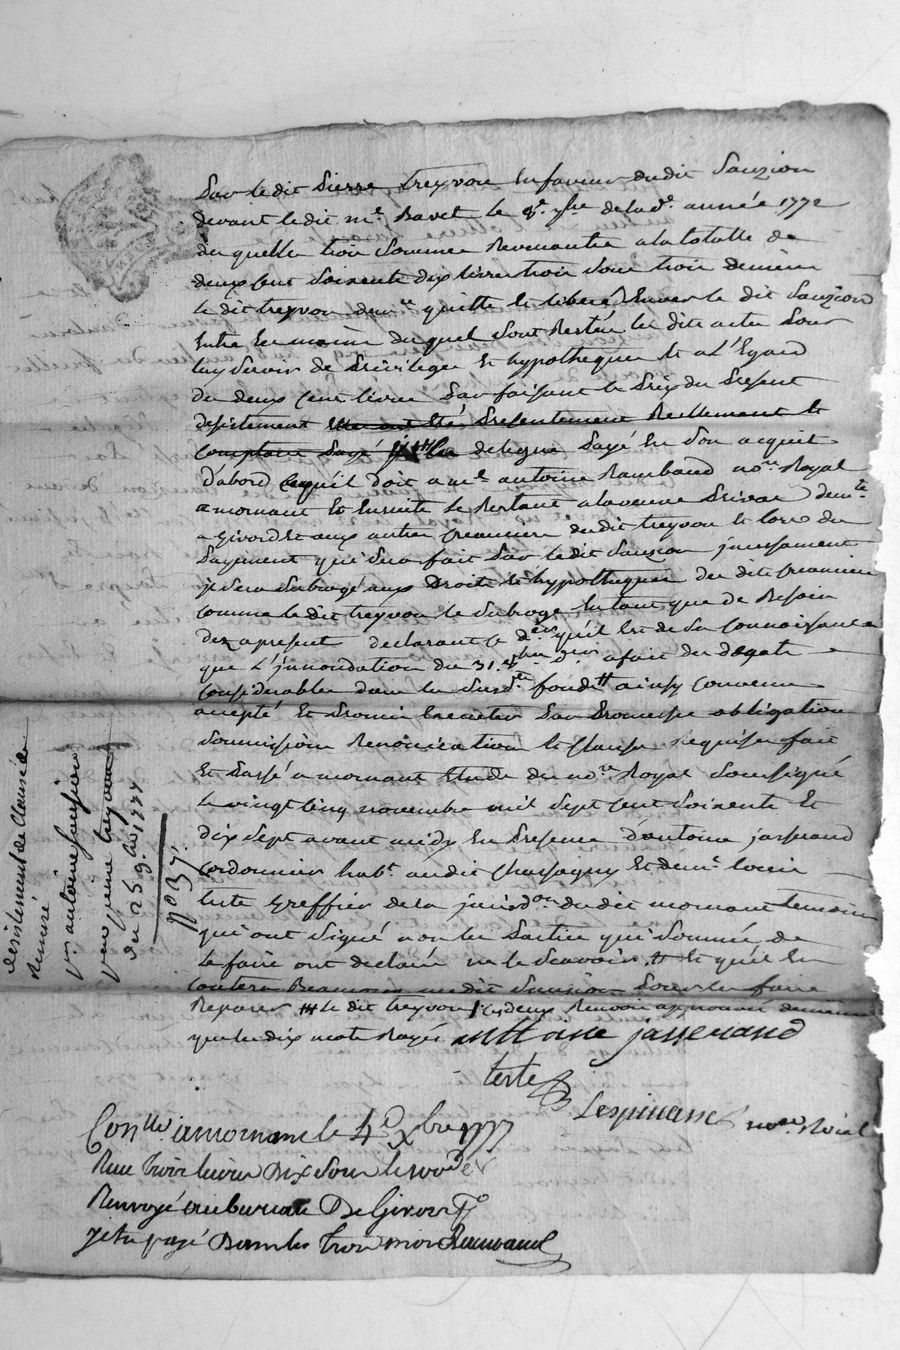 par le dit pierre treyvou en faveur du dit Sauzion
devant le dit me. Ravet le 8e. 7bre de lad. année 1772
les quelles trois sommes Revenantes a la totalle de
deux cent soixante dix livres trois sous trois deniers
le dit treyvou demre quitte et libéré envers le dit Sauzion
entre les mains du quel sont Restés les dits actes pour
luy servir de privilege et hypotheque et a L'Egard
des deux cent livres par faisant le prix du present
desistement luy ont été presentement Reellement et
comptant payé delegue payé en son acquit
d'abord ce qu'il doit a me. antoine Rambaud nore Royal
a mornant et ensuite le Restant a la veuve demte.
a givors et aux autres creanciers du dit treyvou et lors du
payment qui sera fait par le dit Sauzion
il sera subrogé aux Droits et hypotheques des dits creanciers
comme le dit treyvou le subroge en tant que de Besoin
dez a present declarant ce dier qu'il est de sa connoissance
que L'innondation du 31. 8bre dier a fait des degats
considerables dans les susd. fonds # ainsy convenu
accepté et promis executer par promesse obligation
soumission Renonciation et clauses Requises fait
et passé a mornant etude du nore Royal soussigné
le vingt cinq novembre mil sept cent soixante et
dix sept avant midy en presence d'antoine jasseraud
cordonnier habt. au dit chassagny et de me. louis
teste greffier de la jurisdon du dit mornant temoins
qui ont signé non les parties qui sommées de
le faire ont declaré ne le scavoir # et qu'il en
coutera Beaucoup au dit Sauzion pour les faire
Reparer ## le dit treyvou ces deux Renvois approuvés de même
que les dix mots Rayés antoine jasserand
teste
Lespinasse nore Roial
Conlle a mornant le 4 Xbre 1777
Reçu trois livres Dix sous
Renvoyé au bureau De Givors
Rambaud
desistement de
Remise
pr. antoine sauzion
pierre treyvou
du 25 9bre 1777
no 37.